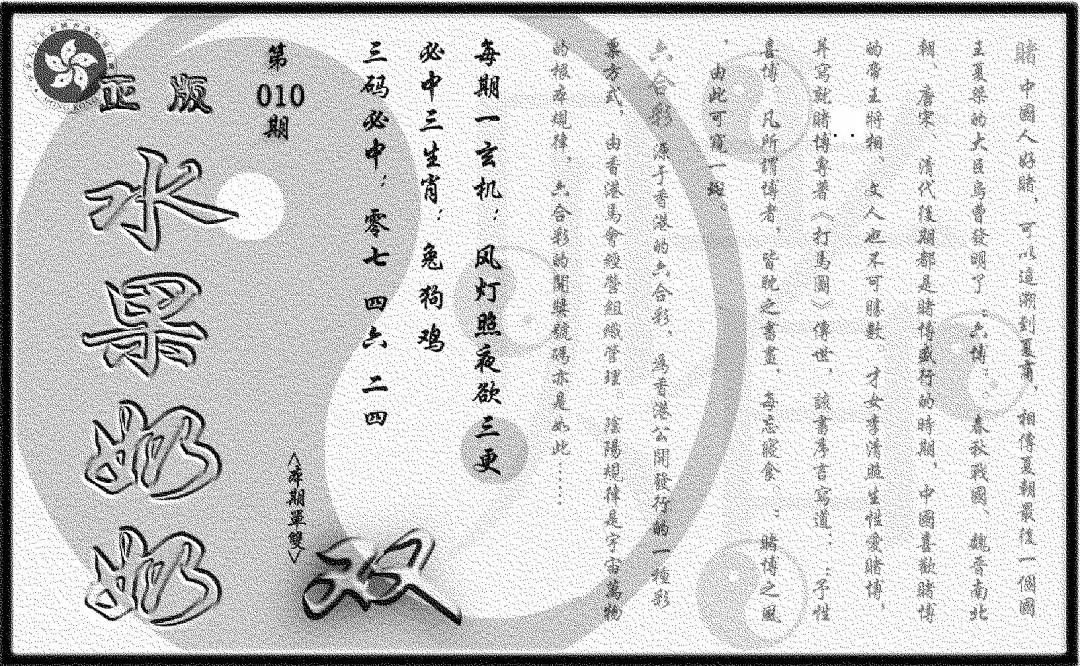 賭中國人好賭，可以追溯到夏商，相傳夏朝最後一個國
王夏桀的大臣烏曹發明了：六博：，春秋戰國、魏晉南北
朝、唐宋、清代後期都是賭博盛行的時期，中國喜歡賭博
的帝王將相、文人也不可勝數，才女李清照生性愛賭博，
并寫就賭博專著《打馬圖》傳世，該書序言寫道：：予性
喜博，凡所謂博者，皆耽之晝，每忘寢食；賭博之風
，由此可窺一斑。
六合彩源于香港的六合彩，為香港公開發行的一種彩
票方式，由香港馬會經營組織管理。陰陽規律是宇宙萬物
的根本規律，六合彩的開獎號碼亦是如此……
每期一玄机：风灯照夜欲三更
必中三生肖：兔狗鸡
三码必中：零七 四六 二四
第
010
期
<本期單雙>
双
正版
水果奶奶